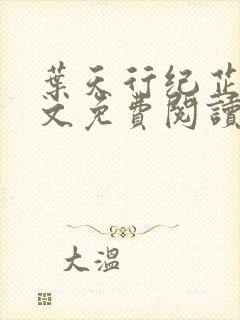 葉天行纪芷
文免費閱讀
大溫